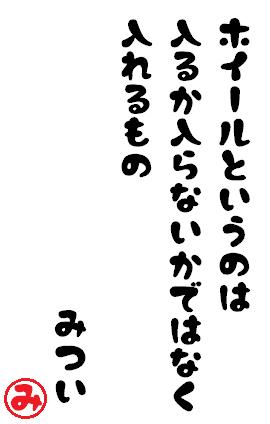 ホイールというのは
入るか入らないかではなく
入れるもの
みつい
み